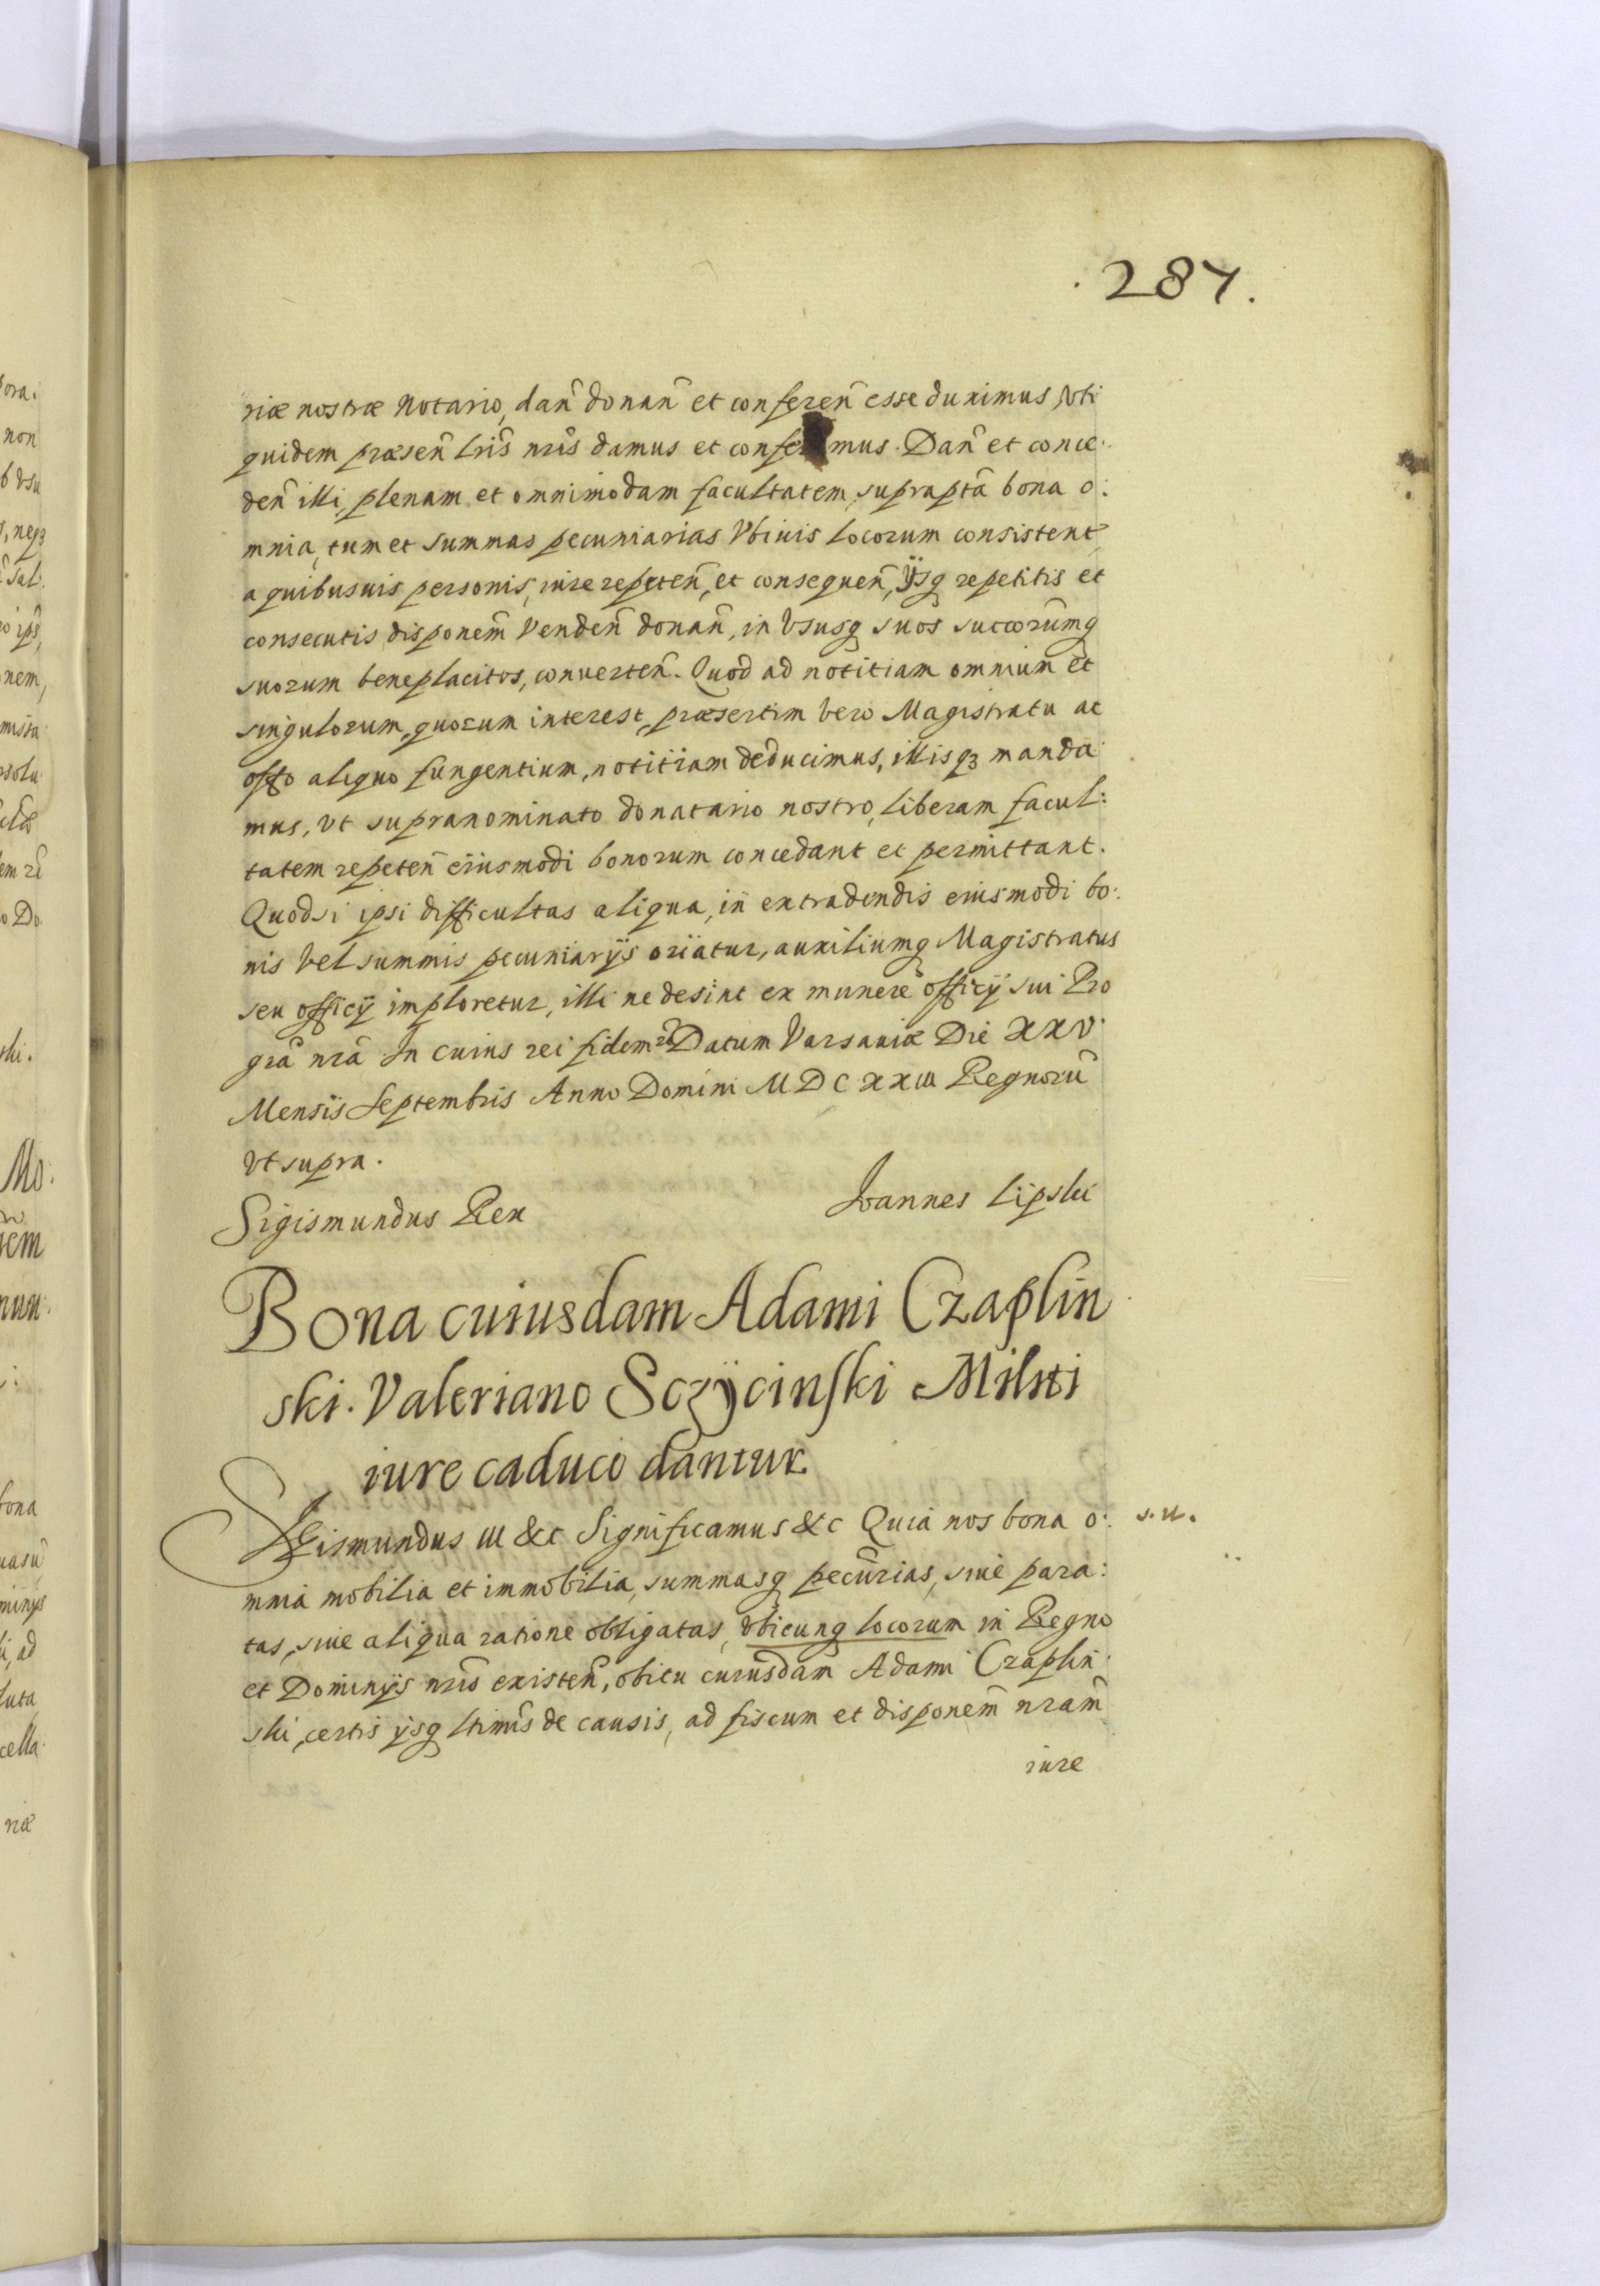 .287.
riæ nostræ Notario, dañ donañ et confereñ esse duximus, Vti
quidem præseñ lr̃is nr̃is damus et conferimus. Dañ et conce.
deñ illi, plenam et omnimodam facultatem, suprap̃ta bona o:
mnia, tum et summas pecuniarias Vbiuis locorum consistent,
a quibusuis personis, iure repeteñ, et consequeñ, ÿsq repetitis et
consecutis disponem̃ Vendeñ donañ, in Vsusq suos succorum̃q
suorum beneplacitos, conuerteñ. Quod ad notitiam omnium et
singulorum, quorum interest, præsertim vero Magistratu ac
offo aliquo fungentium, notitiam deducimus, illisqꝫ manda
mus, vt supranominato donatario nostro, liberam facul:
tatem repeteñ eiusmodi bonorum concedant et permittant.
Quodsi ipsi difficultas aliqua, in extradendis eiusmodi bo:
nis Vel summis pecuniarÿs oriatur, auxiliumq Magistratus
seu officÿ imploretur, illi ne desint ex munere officÿ sui Pro
gr̃a nr̃a In cuius rei fidem Datum Varsauiæ Die XXV.
Mensis Septembris Anno Domini MDCXXIII Regnorũ
vt supra.
Sigismundus Rex
Joannes Lipski
Bona cuiusdam Adami Czaplin
ski. Valeriano Sczÿcinski Militi
iure caduco dantur.
Sigismundus III &c Significamus &c Quia nos bona o:
s. n.
mnia mobilia et immobilia, summasq pecun̄rias, siue para:
tas, siue aliqua ratione obligatas, vbicunq locorum in Regno
et Dominÿs nr̃is existeñ, obitu cuiusdam Adami Czaplin
ski, certis ÿsq ltimis̃ de causis, ad fiscum et disponem̃ nram̃
iure